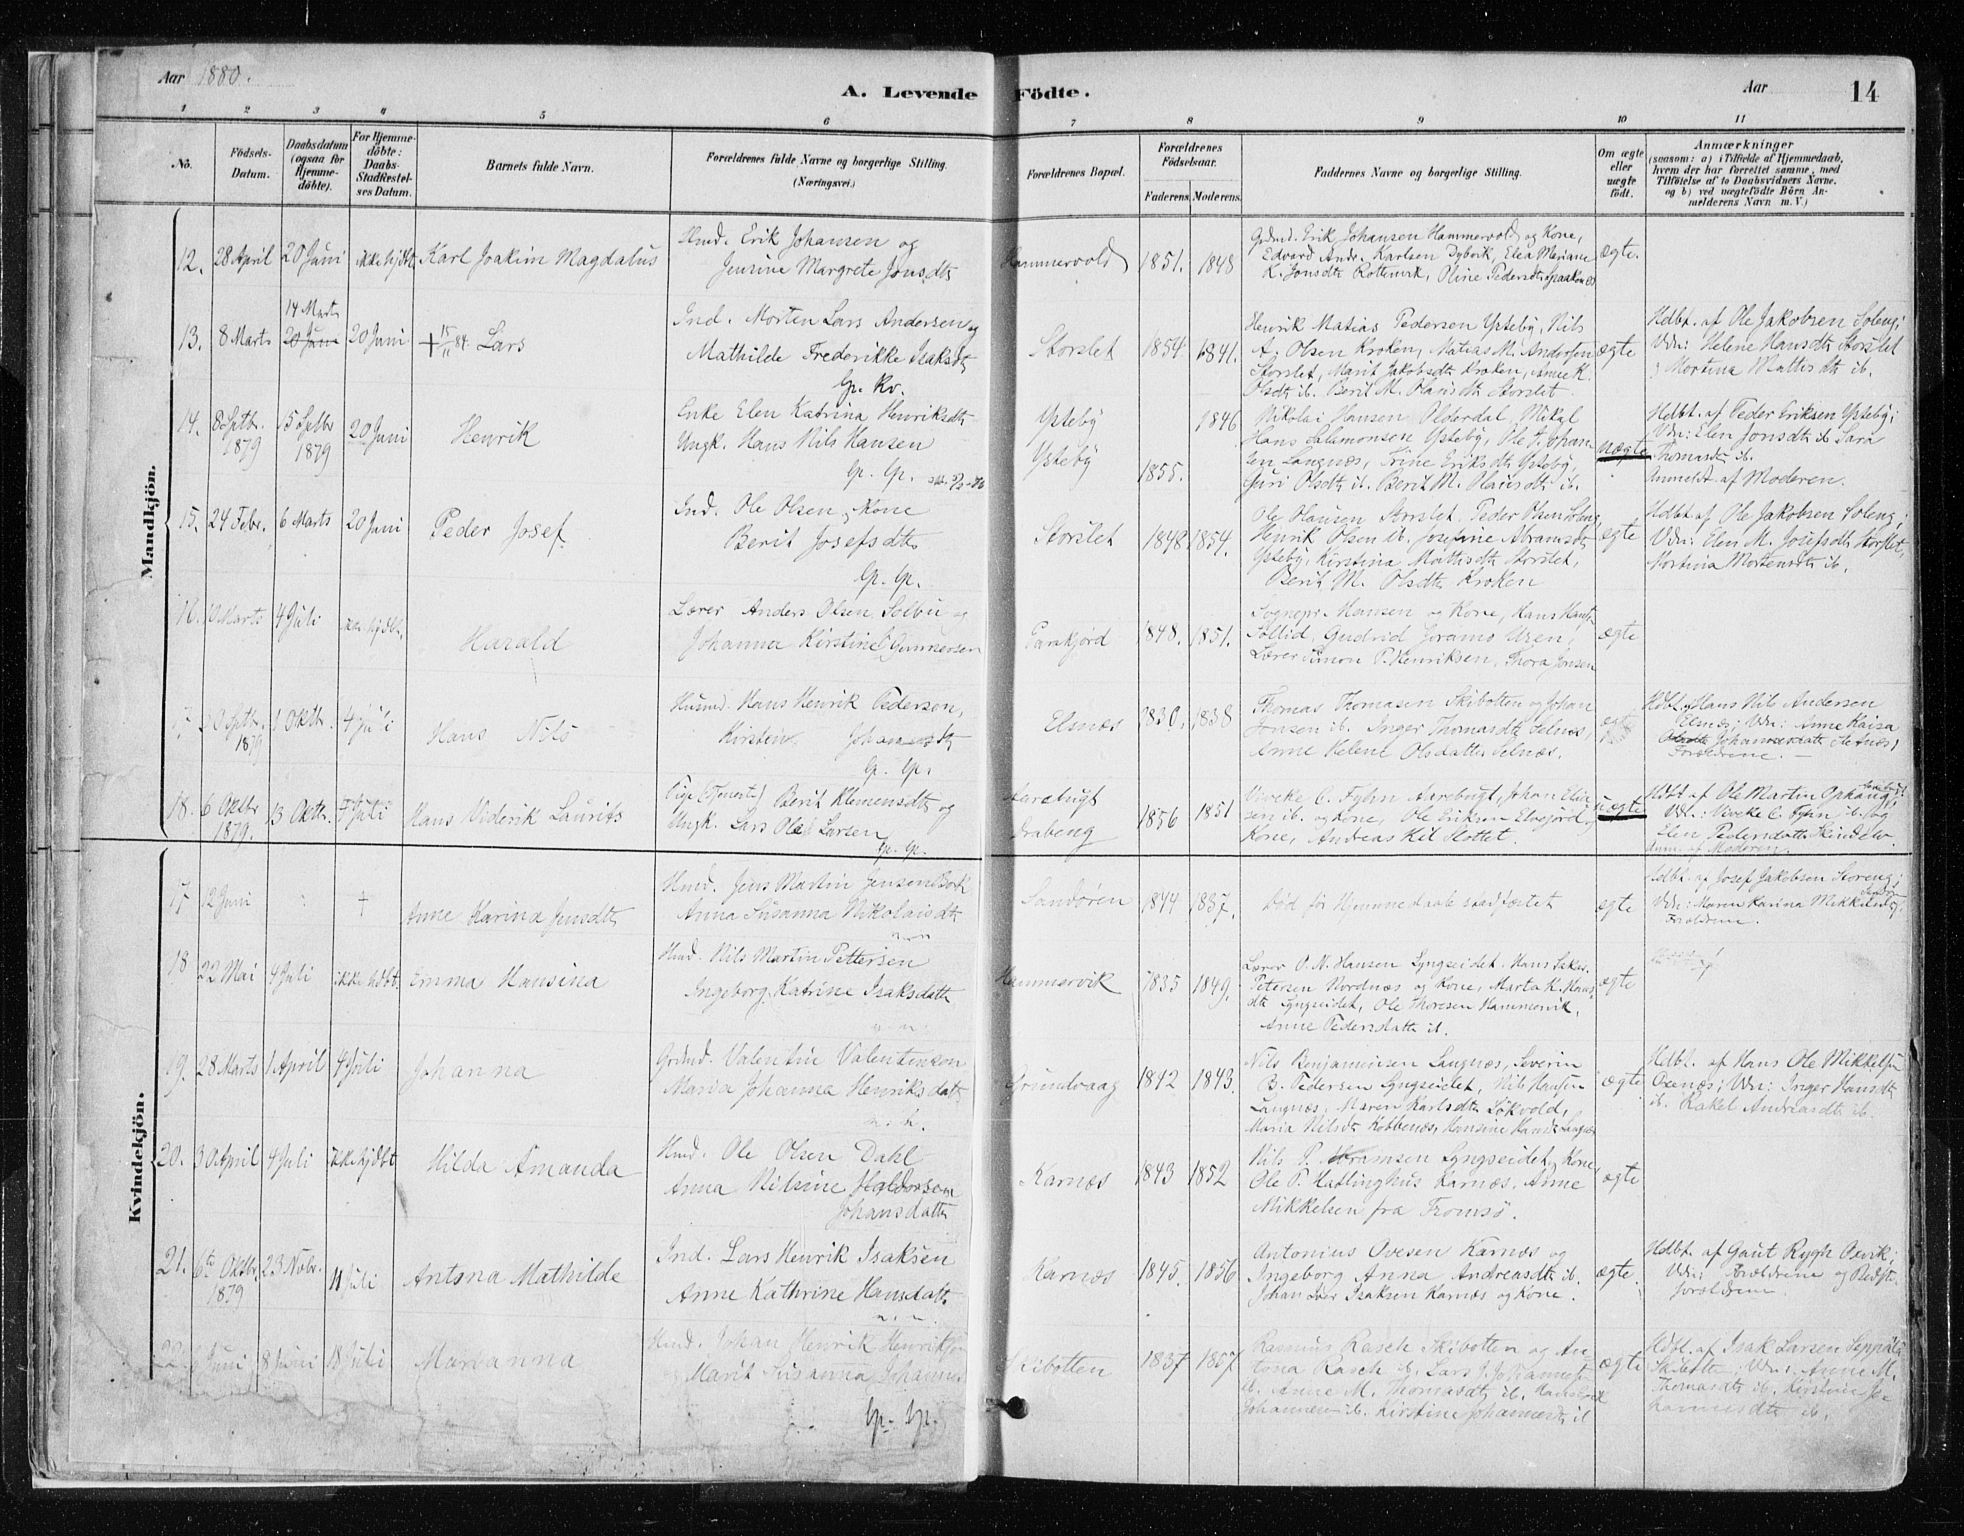 Aar 1880.
A. Levende Födte.
Aar
14
1 2 3 4 5 6 7 8 9 10 11
No.
Födsels-Datum.
Daabsdatum (ogsaa för Hjemme-döbte).
For Hjemme-döbte: Daabs-Stadfæstel-ses Datum.
Barnets fulde Navn.
Forældrenes fulde Navne og borgerlige Stilling. (Næringsvei.)
Forældrenes Bopæl.
Forældrenes Födselsaar.
Faderens. Moderens.
Faddernes Navne og borgerlige Stilling.
Om ægte eller uægte födt.
Anmærkninger
(saasom: a) i Tilfælde af Hjemmedaab,
hvem der har forrettet samme, med
Tilföielse af to Daabsvidners Navne,
og b) ved uægtefödte Börn An-
melderens Navn m. V.)
Mandkjön.
12. 28 April 20 Juni ikke hjdbt Karl Joakim Magdalus
Hmd. Erik Johansen og
Jensine Margrete Jonsdtr
Hammervold 1851. 1848
Grdmd. Erik Johansen Hammervold og Kone,
Edvard Andr. Karlsen Dybvik, Elea Meriane
K. Jonsdtr Rottenvik, Oline Pedersdtr
ægte.
13. 8 Marts 14 Marts 20 Juni 20 Juni + 15/11 84 Lars
Ind. Morten Lars Andersen og
Mathilde Frederikke Isaksdtr
Gp. Kv.
Storslet 1854 1841.
Henrik Matias Pedersen Ysteby, Nils
A. Olsen Kroken, Matias M. Andersen
Storslet, Marit Jakobsdtr Kroken, Anne K.
Olsdtr ib. Berit M. Olausdtr Storslet
ægte
Hdbt. af Ole Jakobsen Soleng;
Vdn: Helene Hansdtr Storslet
Mortina Mattisdtr ib.
14. 8 Sptbr. 1879 15 Sptbr 1879 20 Juni Henrik
Enke Elen Katrina Henriksdtr
Ungk. Hans Nils Hansen
Gp. Gp.
Ysteby
Ysteby 1855. 1846
Nikolai Hansen Olderdal, Mikal
Hans Salamonsen Ysteby, Ole J. Johan-
sen Langnæs, Trine Eriksdtr Ysteby,
Guri Olsdtr ib. Berit M. Olausdtr ib.
uægte
Hdbt. af Peder Eriksen Ysteby;
Vdn: Elen Jonsdtr ib Sara
Thomasdtr ib.
Anmeldt af Moderen.
15. 24 Febr. 6 Marts 20 Juni Peder Josef
Ind. Ole Olsen, Kone
Berit Josefsdtr
Gp. Gp.
Storslet 1848 1854.
Ole Olausen Storslet, Peder Olsen Soleng
Henrik Olsen ib. Josefine Abramsdtr
Ysteby, Kirstina Mathisdtr Storslet,
Berit M. Olsdtr Kroken
ægte
Hdbt. af Ole Jakobsen Soleng;
Vdn: Elen M. Josefsdtr Storslet,
Mortina Mortensdtr ib.
16. 10 Marts 4 Juli ikke hjdbt. Harald
Lærer Anders Olsen Solbu og
Johanna Kirstine Gunnersen
Parakjord 1848. 1851.
Sognepr. Hansen og Kone, Hans Hans
Sollid, Gudrid Joramo Uren,
Lærer Simon P. Henriksen, Thora Jonsen
ægte
17 20 Sptbr. 1879 1 Oktbr. 4 Juli Hans Nils
Husmd. Hans Henrik Pedersen,
Kirsten Johannesdtr
Gp. Gp.
Elsnæs 1830. 1838
Thomas Thomasen Skibotten og Johan
Jonsen ib. Inger Thomasdtr Selnæs,
Anne Helene Olsdatter Selnæs.
Hdbt. Hans Nils Andersen
Elsnæs; Vdn: Anne Kaisa
Olsdatter Johannesdatter Selnæs,
Forældrene. –
18. 6 Oktbr 1879. 13 Oktbr. 4 Juli Hans Viderik Laurits
Pige (Tjenest.) Berit Klemensdtr og
Ungk. Lars Olai Larsen
Gp. Gp.
Aarabugt
Draabeng 1856 1851
Viveke C. Fyhn Aarebugt, Johan Elia-
sen ib. og Kone, Ole Eriksen Elvejord og
Kone, Andreas Kil Slottet.
uægte
Hdbt. af Ole Martin Ophaug,
Vdn.: Viveke C. Fyhn ib. og
Elen Pedersdatter Skindelv.
Anm. af Moderen.
Kvindekjön.
17 12 Juni + Anne Karina Jensdtr
Hmd. Jens Martin Jensen Bork
Anna Susanna Nikolaisdtr
n. n.
Sandören 1844 1837.
Död för Hjemmedaabs stadfæstet
ægte
Hdbt. af Josef Jakobsen Storeng;
Vdn: Maren Karina Mikkelsdtr
Forældrene.
18 22 Mai 4 Juli ikke hdbt. Emma Hansina
Hmd. Nils Martin Pettersen
Ingeborg Katrine Isaksdatter
n. n.
Hammervik 1835 1849.
Lærer O. N. Hansen Lyngseidet. Hans Isak.
Petersen Nordnæs og Kone, Marta K. Hans-
dtr Lyngseidet, Ole Thoresen Hammervik,
Anne Pedersdatter ib.
ægte
19. 28 Marts 1 April 4 Juli Johanna
Grdmd. Valentin Valentinsen
Maria Johanna Henriksdatter
n. n.
Grundvaag 1842 1843.
Nils Benjaminsen Langnæs, Severin
B. Pedersen Lyngseidet, Nils Hansen
Langnæs, Maren Karlsdtr Sökvold,
Maria Nilsdtr Kobbenæs, Hansine Hansdtr Langnæs
ægte
Hdbt. af Hans Ole Mikkelsen
Oxenæs; Vdn: Inger Hansdtr
ib. Rakel Andreasdtr ib.
20. 30 April 4 Juli ikke hjdbt Hilda Amanda
Hmd. Ole Olsen Dahl
Anna Nilsine Haldorsen
Johansdatter
Karnæs 1843 1852
Nils P. Abramsen Lyngseidet, Kone,
Ole P. Hatlinghus Karnæs. Anne
Mikkelsen fra Tromsö.
ægte
21. 6te Oktbr 1879 23 Nobr. 11 Juli Antona Mathilde
Ind. Lars Henrik Isaksen
Anne Kathrine Hansdatter
n. n.
Karnæs 1845. 1856
Antonius Ovesen Karnæs og
Ingeborg Anna Andreasdtr ib.
Johan Isaksen Karnæs og Kone.
ægte.
Hdbt. af Gaut Rygh Oxvik;
Vdn: Forældrene og Bedste-
forældrene.
22. Juni 8 Juni 18 Juli Marianna
Hmd. Johan Henrik Henriksen
Marit Susanna Johannes
Gp. Gp.
Skibotten 1837 1857.
Rasmus Rasch Skibotten og An-
tona Rasch ib. Lars J. Johannes
ib. Anne M. Thomasdtr ib.
Johannesen ib. Kirstine Johannesdtr ib
ægte
Hdbt. af Isak Larsen Seppälä
Skibotten; Vdn: Anne M.
Thomasdtr ib. Kirstina Jo-
hannesdtr ib.